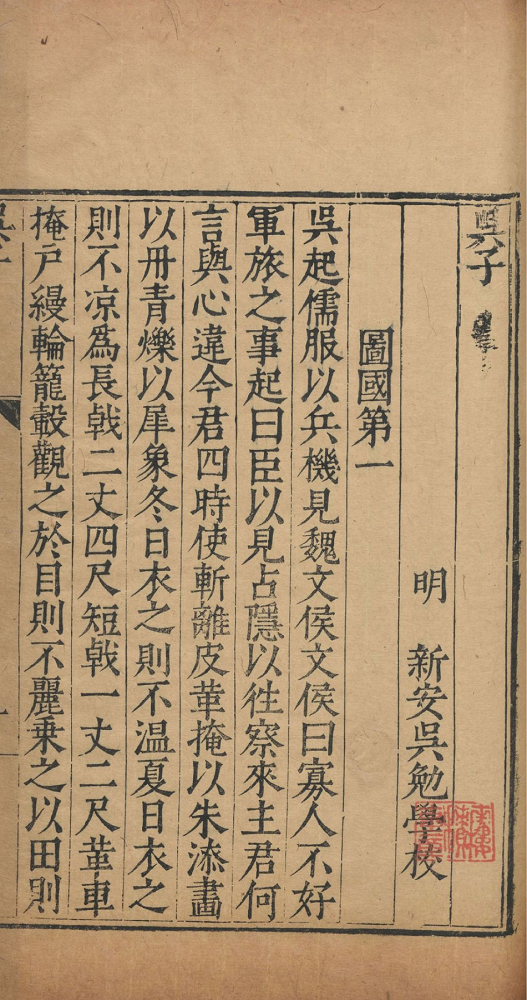 吳子
明 新安吳勉學校
圖國第一
吳起儒服以兵機見魏文侯文侯曰寡人不好
軍旅之事起曰臣以見占隱以徃察來主君何
言與心違今君四時使斬離皮革掩以朱漆畫
以丹青爍以犀象冬日衣之則不温夏日衣之
則不凉爲長戟二丈四尺短戟一丈二尺革車
掩戸縵輪籠轂觀之於目則不麗乗之以田則